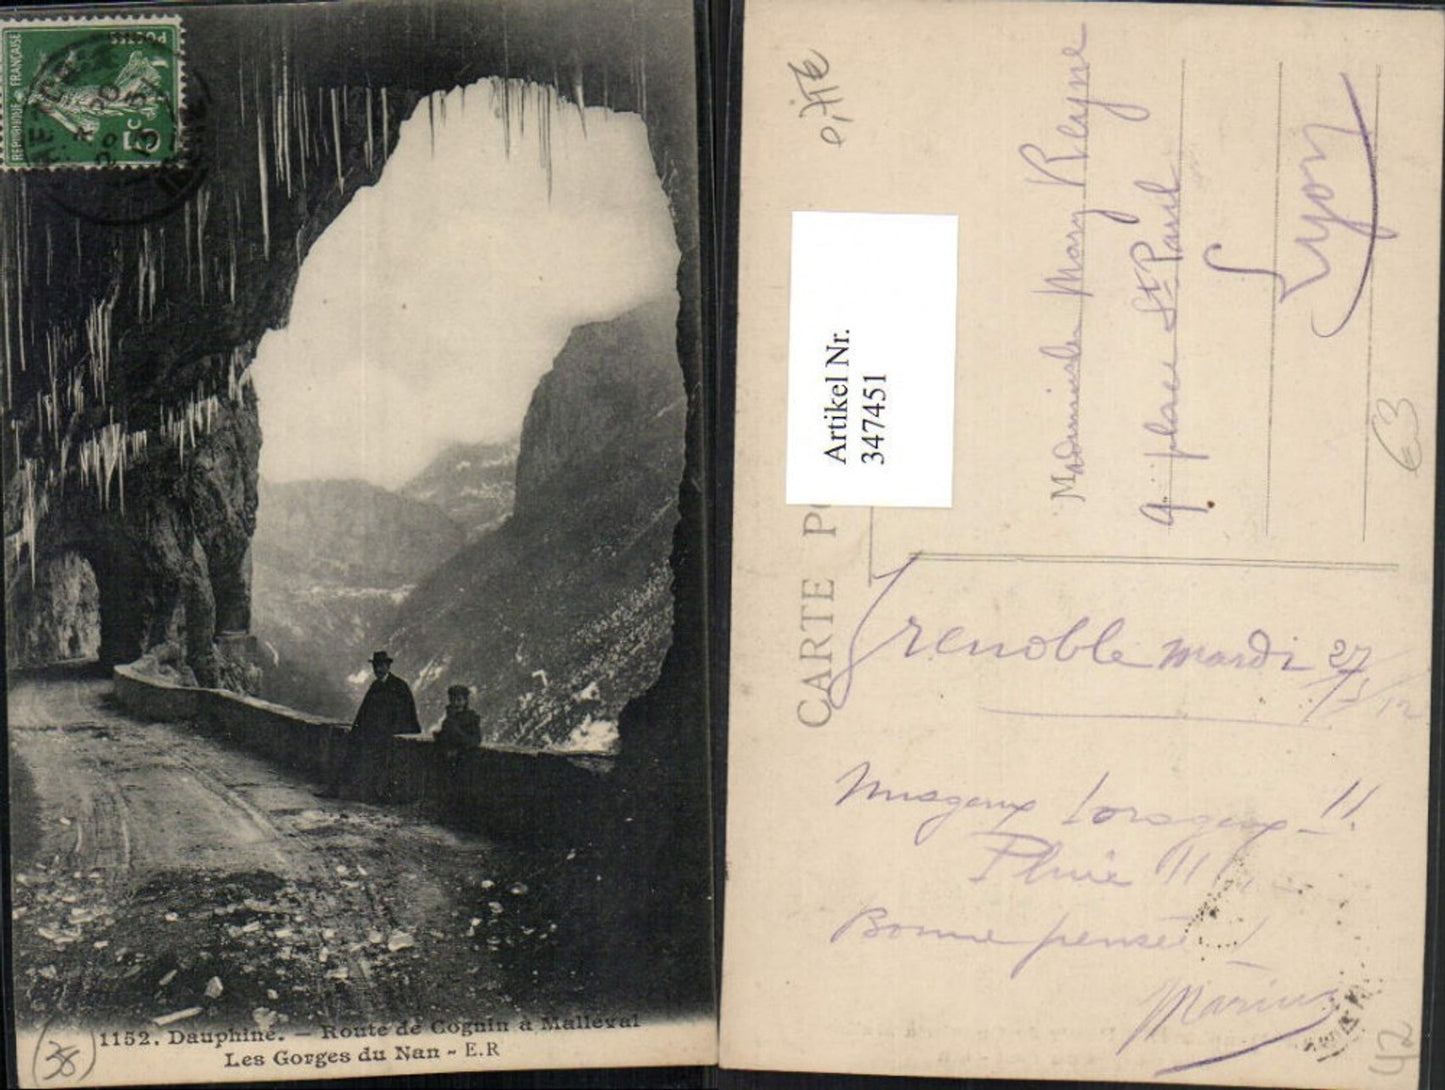 RÉPUBLIQUE FRANÇAISE
POSTES
5c
1152. Dauphiné. — Route de Cognin à Malleval
Les Gorges du Nan - E.R
38
Artikel Nr.
347451
CARTE PO
Mademoiselle Mary Reyne
9 place St Paul
Lyon
€3
Grenoble mardi 27/5/12
nuageux !!
Pluie !!
Bonne pensée !
Marius
42